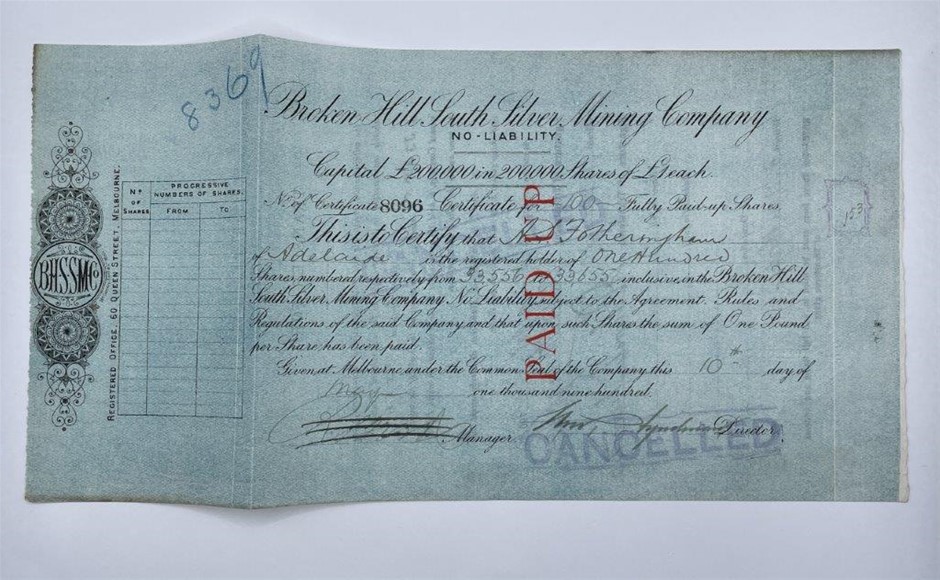 8369
Broken Hill South Silver Mining Company
NO-LIABILITY.
Capital £200,000 in 200,000 Shares of £1 each
No. of Certificate 8096 Certificate for 100 Fully Paid-up Shares.
This is to Certify that A. L. Fotheringham
of Adelaide is the registered holder of One Hundred
Shares numbered respectively from 33556 to 33655 inclusive, in the Broken Hill
South Silver Mining Company No Liability, subject to the Agreement, Rules and
Regulations of the said Company, and that upon such Shares the sum of One Pound
per Share has been paid.
Given at Melbourne under the Common Seal of the Company this 10th day of
May one thousand nine hundred.
Manager. Director.
PAID UP
CANCELLED
B.H.S.S.M.Co
REGISTERED OFFICE, 60 QUEEN STREET, MELBOURNE.
No OF SHARES
PROGRESSIVE NUMBERS OF SHARES.
FROM TO
153